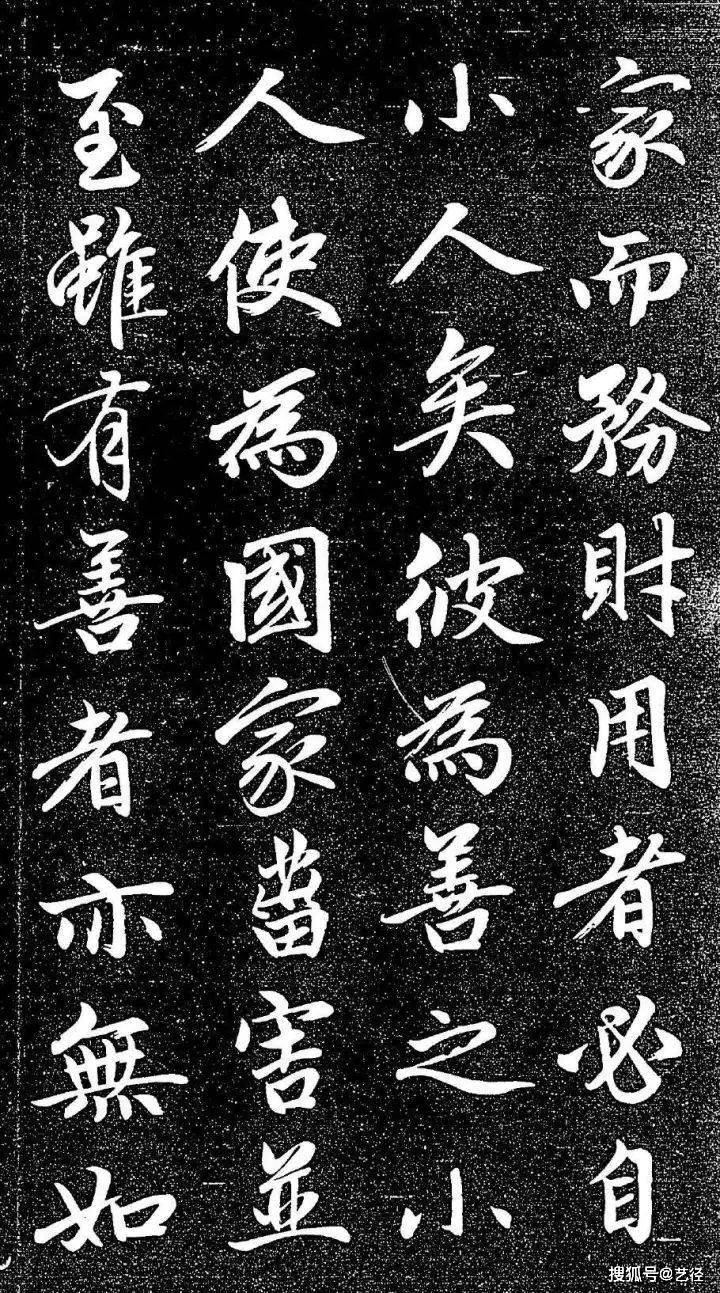 家而務財用者必自
小人矣彼為善之小
人使為國家菑害並
至雖有善者亦無如
搜狐号@艺径